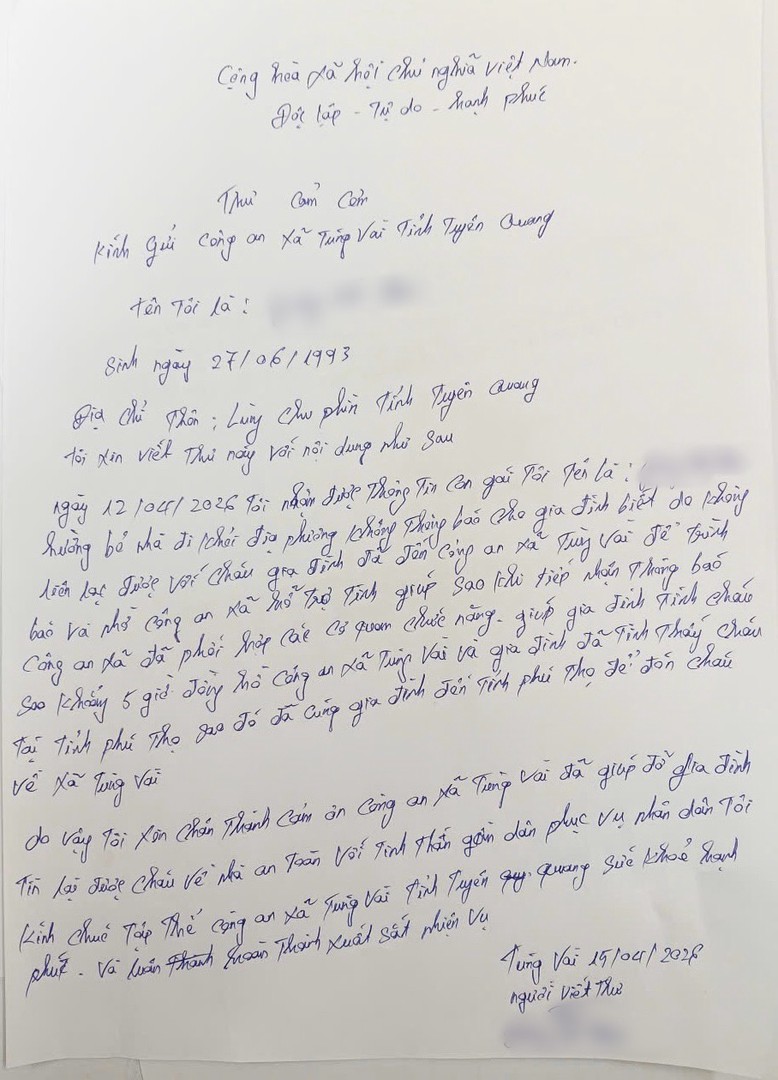 Cộng hoà xã hội chủ nghĩa việt Nam.
Độc lập - Tự do - hạnh phúc
Thư cảm ơn
kính gửi công an xã Tùng Vài Tỉnh Tuyên Quang
tên Tôi là :
Sinh ngày 27/06/1993
Địa chỉ Thôn ; Lùng Chu phìn Tỉnh Tuyên Quang
tôi xin viết Thư này với nội dung như sau
ngày 12/04/2026 Tôi nhận được Thông Tin con gái Tôi Tên là :
bỏ nhà đi khỏi địa phương không Thông báo cho gia đình biết do không
liên lạc được với cháu gia đình đã đến công an xã Tùng Vài để Trình
báo và nhờ công an xã hỗ Trợ Tình giúp sao khi tiếp nhận Thông báo
Công an xã đã phối hợp các cơ quan chức năng. giúp gia đình Tình cháu
sao khoảng 5 giờ đồng hồ công an xã Tùng Vài và gia đình đã Tình Thấy cháu
Tại Tỉnh phú Thọ sao đó đã cùng gia đình đến Tỉnh phú Thọ để đón cháu
về xã Tùng Vài
do vậy Tôi xin chân Thành cảm ơn công an xã Tùng Vài đã giúp đỡ gia đình
Tìn lại được cháu về nhà an Toàn với Tinh Thần gần dân phục vụ nhân dân Tôi
kính chúc Tập Thể công an xã Tùng Vài Tỉnh Tuyên quang sức khoẻ hạnh
phúc. và luôn hoàn Thành xuất sắt nhiện vụ
Tùng Vài 15/04/2026
người viết Thư